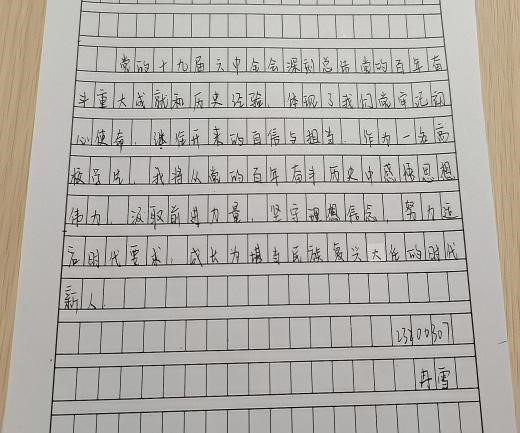 党的十九届六中全会深刻总结党的百年奋
斗重大成就和历史经验，体现了我们党牢记初
心使命，继往开来的自信与担当．作为一名高
校学生，我将从党的百年奋斗历史中感悟思想
伟力，汲取前进力量，坚守理想信念，努力适
应时代要求，成长为堪当民族复兴大任的时代
新人．
冉雪